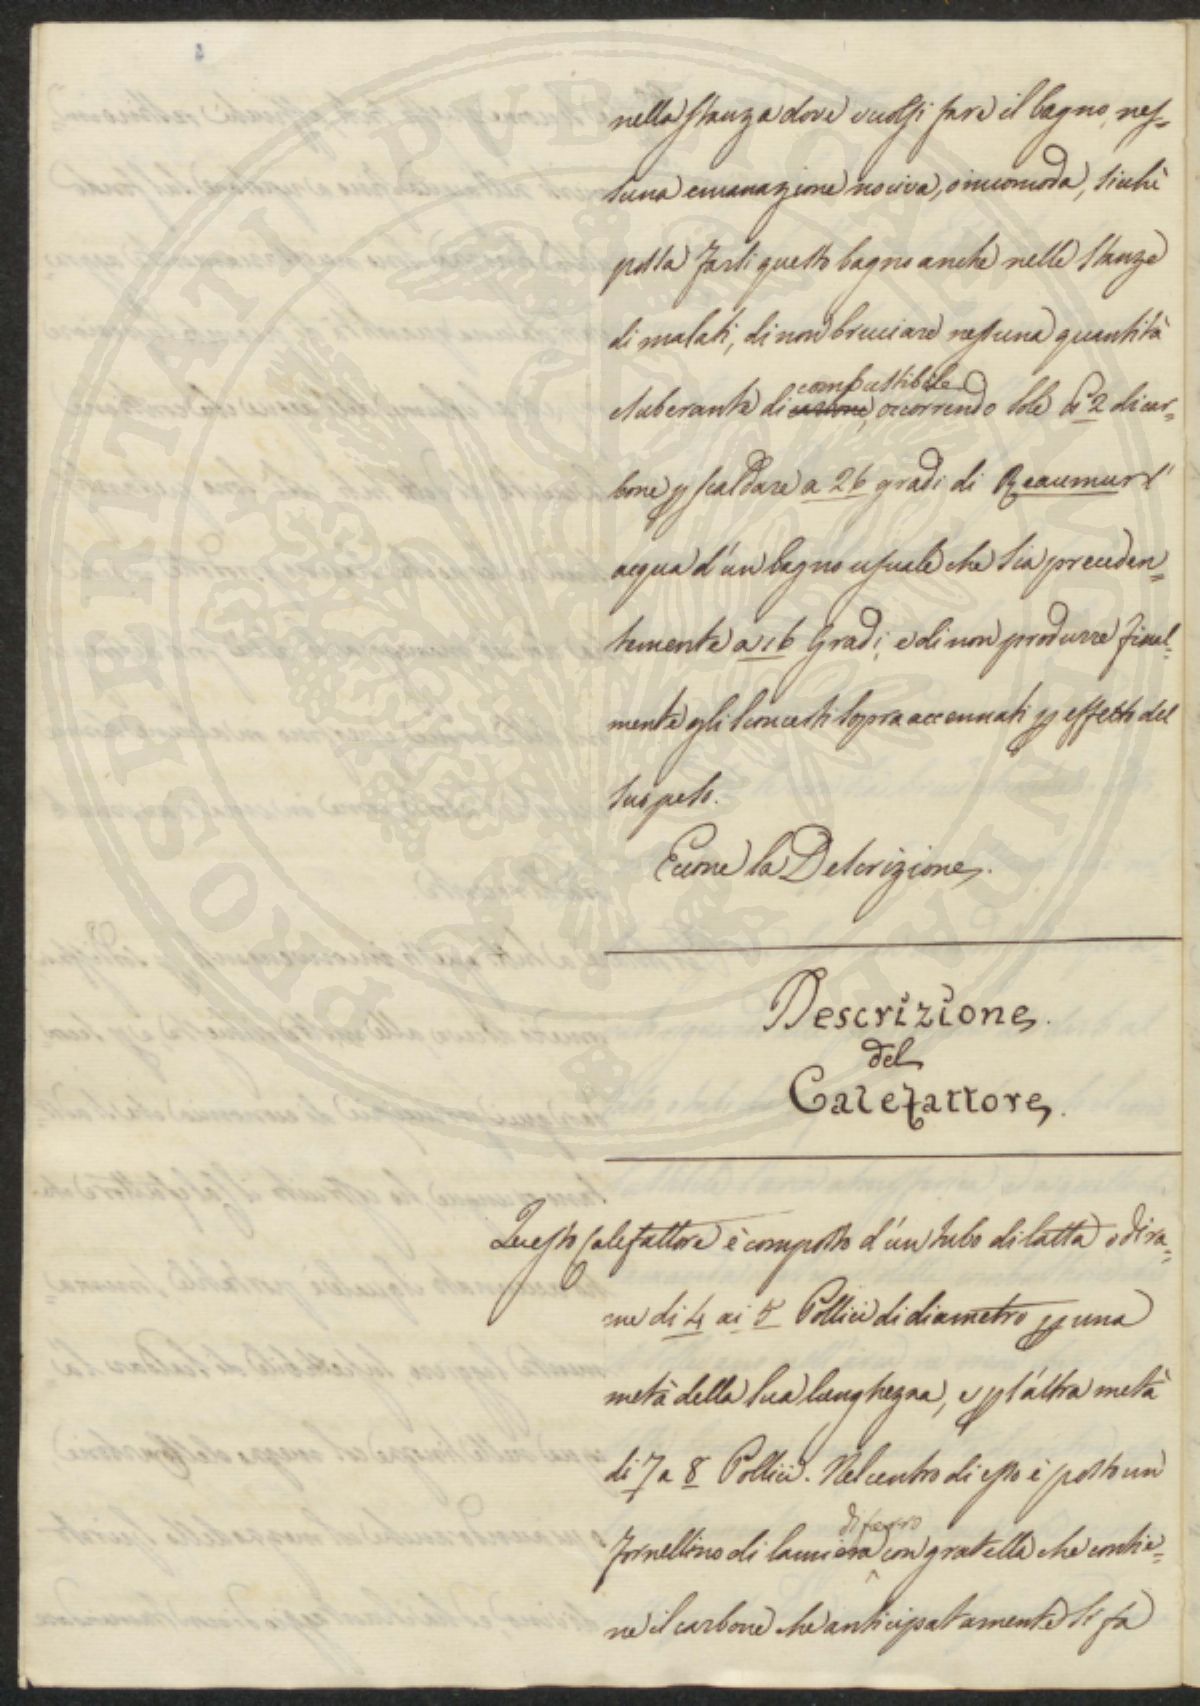 nella stanza dove vuolsi fare il bagno, nes=
suna emanazione nociva, o incomoda, sicchè
possa farsi questo bagno anche nelle stanze
di malati, di non bruciare nessuna quantità
combustibile
esuberante di carbone, occorrendo sole ℔ 2 di car=
bone p scaldare a 26 gradi di Reaumur l'
acqua d'un bagno usuale che sia preceden=
temente a 16 Gradi, e di non produrre final=
mente gli sconcerti sopra accennati p effetto del
suo peso.
Eccone la Descrizione.
Descrizione
del
Calefattore.
Questo Calefattore è composto d'un tubo di latta o di ra=
me di 4 ai 5 Pollici di diametro p una
metà della sua lunghezza, e p l'altra metà
di 7 a 8 Pollici. Nel centro di esso è posto un
di ferro
fornellino di lamiera con gratella che contie=
ne il carbone che anticipatamente si fa
PROSPERITATI PVBLICAE